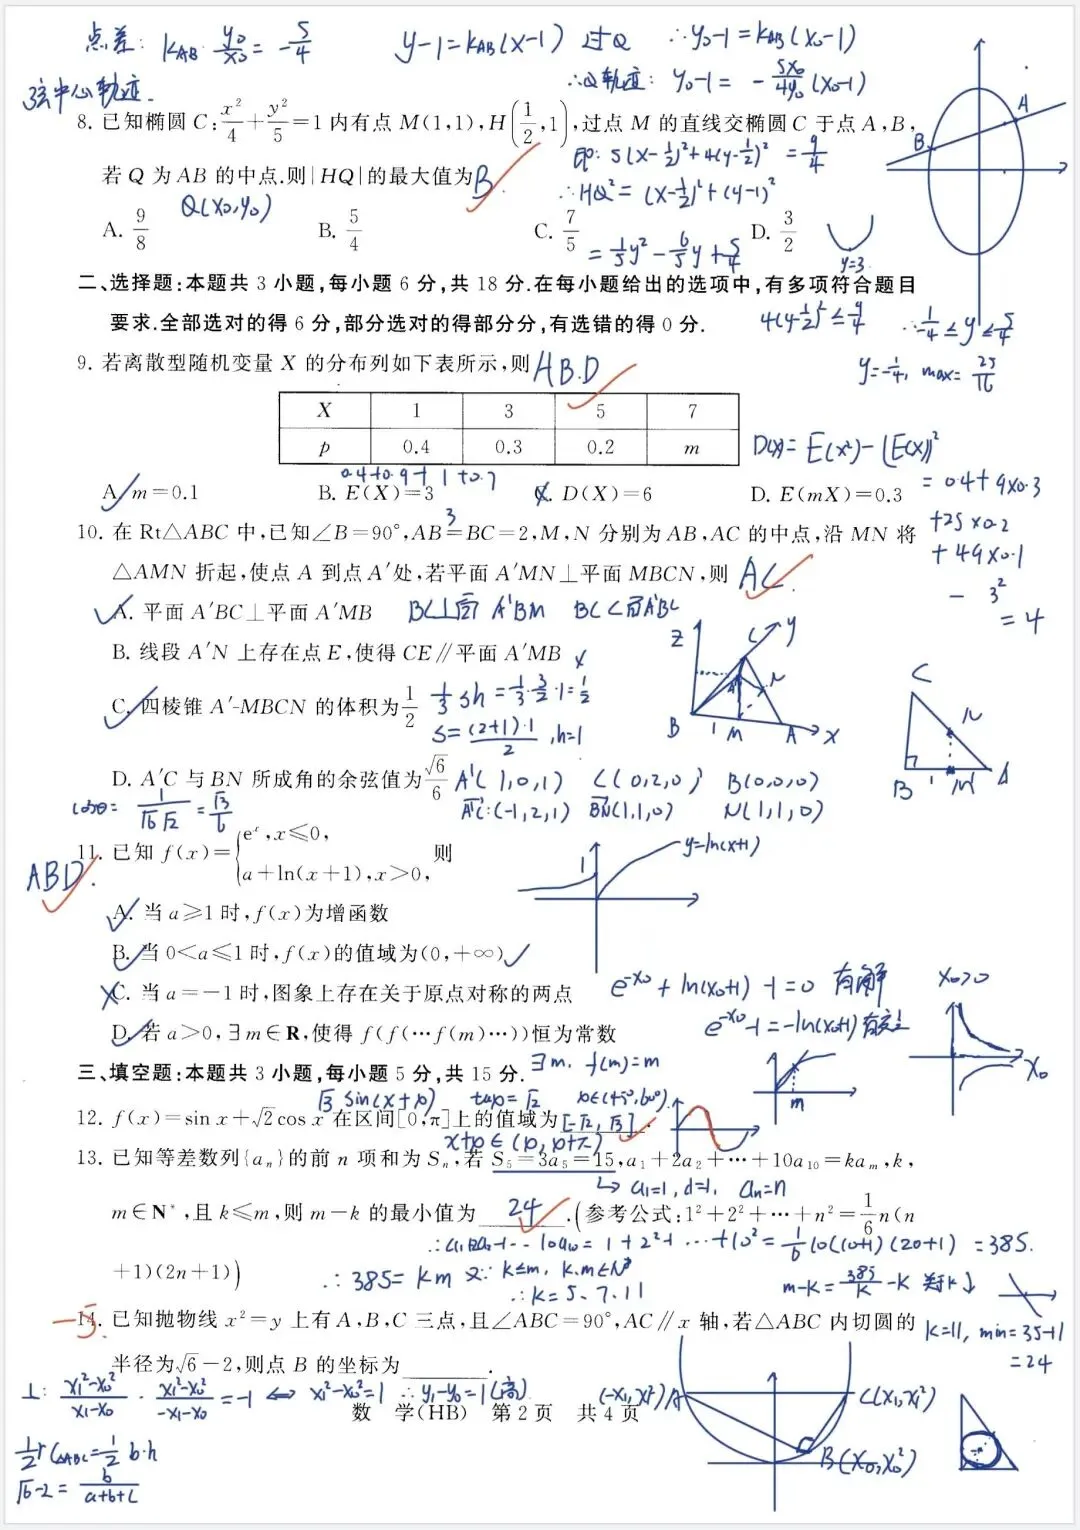 点差: k_AB · y₀/x₀ = -5/4
y-1=k_AB(x-1) 过Q ∴y₀-1=k_AB(x₀-1)
弦中心轨迹.
∴Q轨迹: y₀-1= -5x₀/4y₀ (x₀-1)
8. 已知椭圆 C: x²/4 + y²/5 = 1 内有点 M(1,1), H(1/2,1), 过点 M 的直线交椭圆 C 于点 A,B,
即: 5(x-1/2)²+4(y-1/2)² = 9/4
若 Q 为 AB 的中点.则|HQ|的最大值为 B
∴HQ² = (x-1/2)²+(y-1)²
Q(x₀,y₀)
A. 9/8 B. 5/4 C. 7/5 D. 3/2
= 1/5y² - 6/5y + 5/4
y=3
A
B
二、选择题:本题共 3 小题,每小题 6 分,共 18 分.在每小题给出的选项中,有多项符合题目
要求.全部选对的得 6 分,部分选对的得部分分,有选错的得 0 分.
4(y-1/2)² ≤ 9/4 ∴-1/4 ≤ y ≤ 5/4
y=-1/4, max= 25/16
9. 若离散型随机变量 X 的分布列如下表所示,则 ABD
X 1 3 5 7
p 0.4 0.3 0.2 m
D(X)= E(X²)-(E(X))²
0.4+0.9+1+0.7
A. m=0.1 B. E(X)=3 C. D(X)=6 D. E(mX)=0.3
= 0.4+9×0.3
+25×0.2
+49×0.1
- 3²
= 4
3
10. 在 Rt△ABC 中,已知∠B=90°,AB=BC=2,M,N 分别为 AB,AC 的中点,沿 MN 将
△AMN 折起,使点 A 到点 A′处,若平面 A′MN⊥平面 MBCN,则 AC
A. 平面 A′BC⊥平面 A′MB BC⊥面 A'BM BC⊂面A'BC
B. 线段 A′N 上存在点 E,使得 CE∥平面 A′MB ×
C. 四棱锥 A′-MBCN 的体积为 1/2 1/3 sh = 1/3·3/2·1 = 1/2
S= (2+1)·1/2 , h=1
z C y N B 1 M A x
C N B 1 M A
D. A′C 与 BN 所成角的余弦值为 √6/6 A'(1,0,1) C(0,2,0) B(0,0,0)
cosθ= 1/√6√2 = √3/6 A'C:(-1,2,1) BN(1,1,0) N(1,1,0)
11. 已知 f(x)={eˣ,x≤0, a+ln(x+1),x>0, 则
ABD
1 y=ln(x+1)
A. 当 a≥1 时,f(x)为增函数
B. 当 0<a≤1 时,f(x)的值域为(0,+∞)
C. 当 a=-1 时,图象上存在关于原点对称的两点 e^-x₀ + ln(x₀+1) -1=0 有解 x₀>0
D. 若 a>0,∃m∈R,使得 f(f(…f(m)…))恒为常数 e^-x₀ -1=-ln(x₀+1)
x₀
三、填空题:本题共 3 小题,每小题 5 分,共 15 分. ∃m, f(m)=m
m
√3 sin(x+φ) tanφ=√2 φ∈(45°,60°)
12. f(x)=sin x+√2cos x 在区间[0,π]上的值域为 [-√2,√3].
x+φ∈(φ,φ+π)
13. 已知等差数列{aₙ}的前 n 项和为 Sₙ,若 S₅=3a₅=15,a₁+2a₂+…+10a₁₀=kaₘ,k,
↳ a₁=1,d=1, aₙ=n
m∈N*,且 k≤m,则 m-k 的最小值为 24.(参考公式:1²+2²+…+n²=1/6 n(n
∴a₁+2a₂+…10a₁₀ = 1+2²+…+10² = 1/6·10(10+1)(20+1) =385.
+1)(2n+1))
∴385=km 又∵ k≤m, k,m∈N* m-k= 385/k -k 关于k↓
∴k=5、7、11
-5
14. 已知抛物线 x²=y 上有 A,B,C 三点,且∠ABC=90°,AC∥x 轴,若△ABC 内切圆的
k=11, min=35-11
=24
半径为√6-2,则点 B 的坐标为 .
⊥: x₁²-x₀²/x₁-x₀ · x₁²-x₀²/-x₁-x₀ =-1 ⇔ x₁²-x₀²=1 ∴y₁-y₀=1(高)
(-x₁,x₁²)A C(x₁,x₁²)
B(x₀,x₀²)
数 学(HB) 第 2 页 共 4 页
1/2 r C△ABC = 1/2 b·h
√6-2 = b/a+b+c